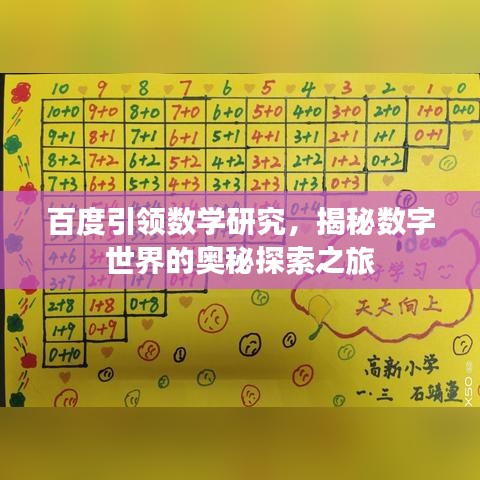 10 9 8 7 6 5 4 3 2 1 0
10+0 9+0 8+0 7+0 6+0 5+0 4+0 3+0 2+0 1+0 0+0
9+1 8+1 7+1 6+1 5+1 4+1 3+1 2+1 1+1 0+1
8+2 7+2 6+2 5+2 4+2 3+2 2+2 1+2 0+2
7+3 6+3 5+3 4+3 3+3 2+3 1+3 0+3
百度引领数学研究，揭秘数字
世界的奥秘探索之旅
好学习
2+8 1+8 0+8
天天向上
1+9 0+9
0+10
高新小学
一.三 石靖